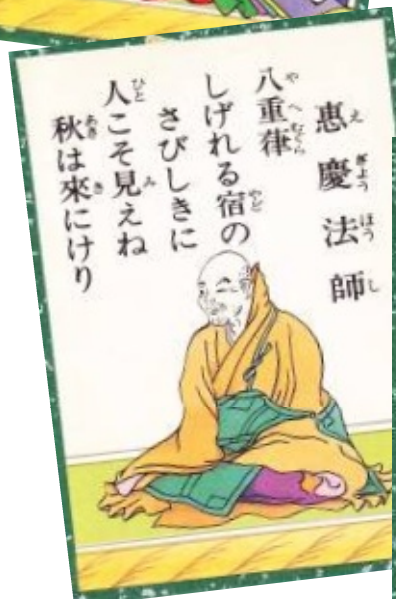 惠慶法師
八重葎
しげれる宿の
さびしきに
人こそ見えね
秋は來にけり